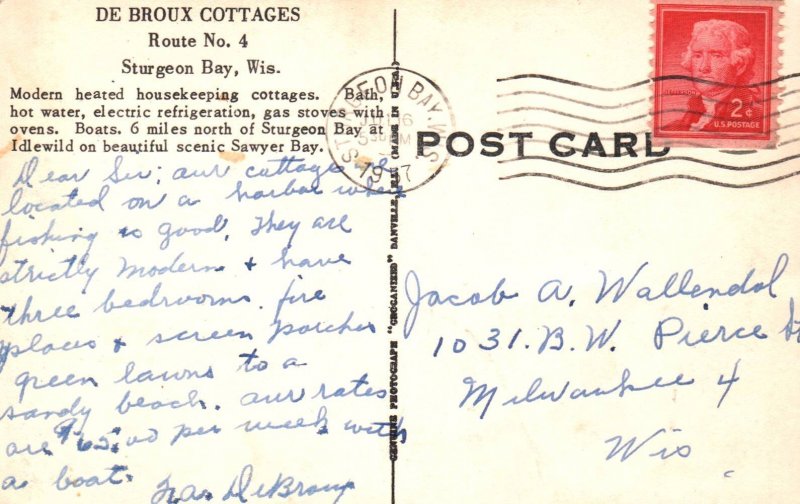 DE BROUX COTTAGES
Route No. 4
Sturgeon Bay, Wis.
Modern heated housekeeping cottages. Bath,
hot water, electric refrigeration, gas stoves with
ovens. Boats. 6 miles north of Sturgeon Bay at
Idlewild on beautiful scenic Sawyer Bay.
Dear Sir; our cottages
located on a harbor where
fishing is good. They are
strictly modern + have
three bedrooms. fire
places + screen porches
green lawns to a
sandy beach. our rates
are $65.00 per week with
a boat.
DeBroux
GENUINE PHOTOGRAPH "GROGANIZED" DANVILLE, (MADE IN U.S.A.)
STURGEON BAY, WIS
2¢
U.S. POSTAGE
POST CARD
Jacob A. Wallendal
1031. B. W. Pierce St
Milwaukee 4
Wis